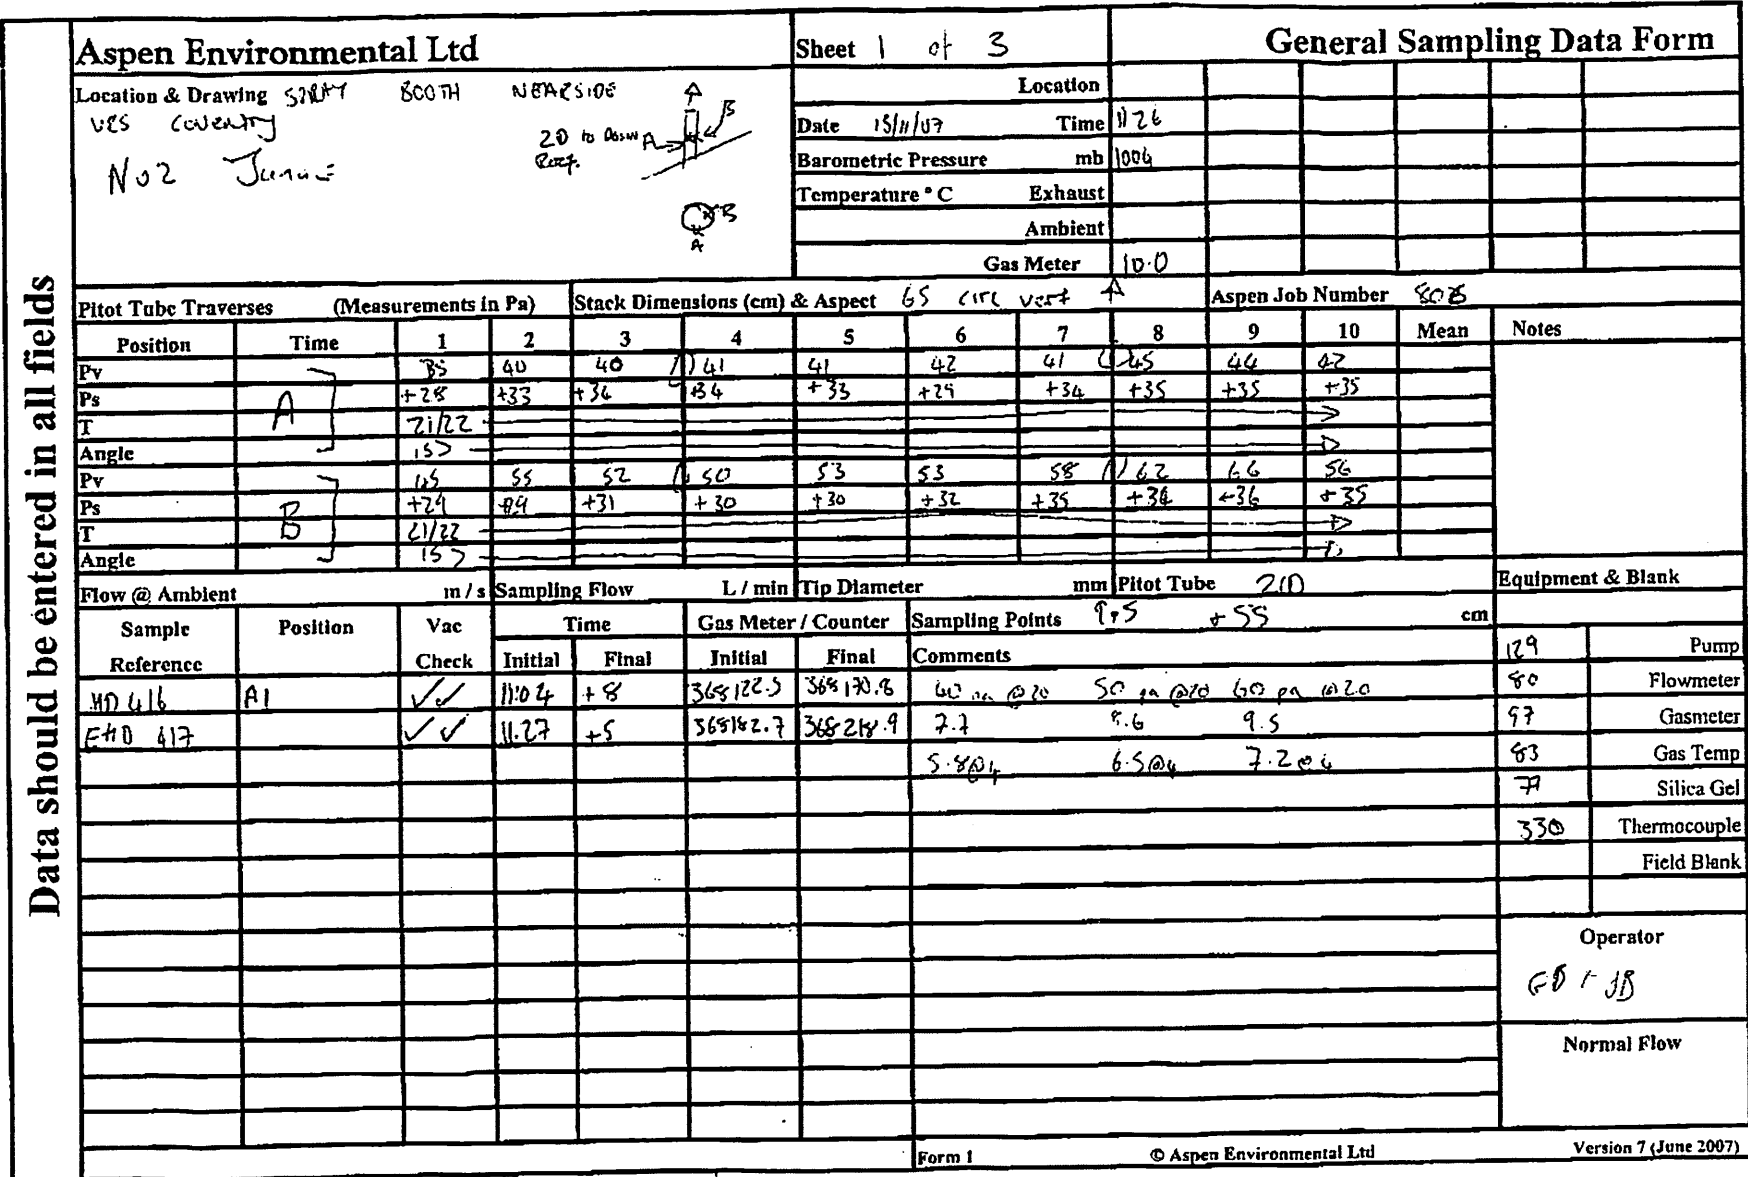 Data should be entered in all fields
Aspen Environmental Ltd
Sheet 1 of 3
General Sampling Data Form
Location & Drawing SPRAY BOOTH NEARSIDE
VES COVENTRY
No2
2D to Down
A B
A B
Location
Date 15/11/07 Time 1126
Barometric Pressure mb 1004
Temperature °C Exhaust
Ambient
Gas Meter 10.0
Pitot Tube Traverses (Measurements in Pa) Stack Dimensions (cm) & Aspect 65 CIRC VERT ↑ Aspen Job Number
Position Time 1 2 3 4 5 6 7 8 9 10 Mean Notes
Pv 35 40 40 41 41 42 41 45 44 42
Ps +28 +33 +34 +34 +33 +29 +34 +35 +35 +35
A
T 21/22
Angle 15>
Pv 45 55 52 50 53 53 58 62 66 56
Ps +29 +29 +31 +30 +30 +32 +35 +34 +36 +35
B
T 21/22
Angle 15>
Flow @ Ambient m / s Sampling Flow L / min Tip Diameter mm Pitot Tube 210 Equipment & Blank
Sample Reference Position Vac Check Time Initial Final Gas Meter / Counter Initial Final
Sampling Points 9.5 + 55 cm
Comments
HD 416 A1 ✓✓ 11.04 +8 368122.5 368170.8 40 pa @20 50 pa @20 60 pa @20
EHD 417 ✓✓ 11.27 +5 368182.7 368218.9 7.7 8.6 9.5
5.8@4 6.5@4 7.2@4
129 Pump
80 Flowmeter
97 Gasmeter
83 Gas Temp
79 Silica Gel
330 Thermocouple
Field Blank
Operator
JB
Normal Flow
Form 1 © Aspen Environmental Ltd Version 7 (June 2007)